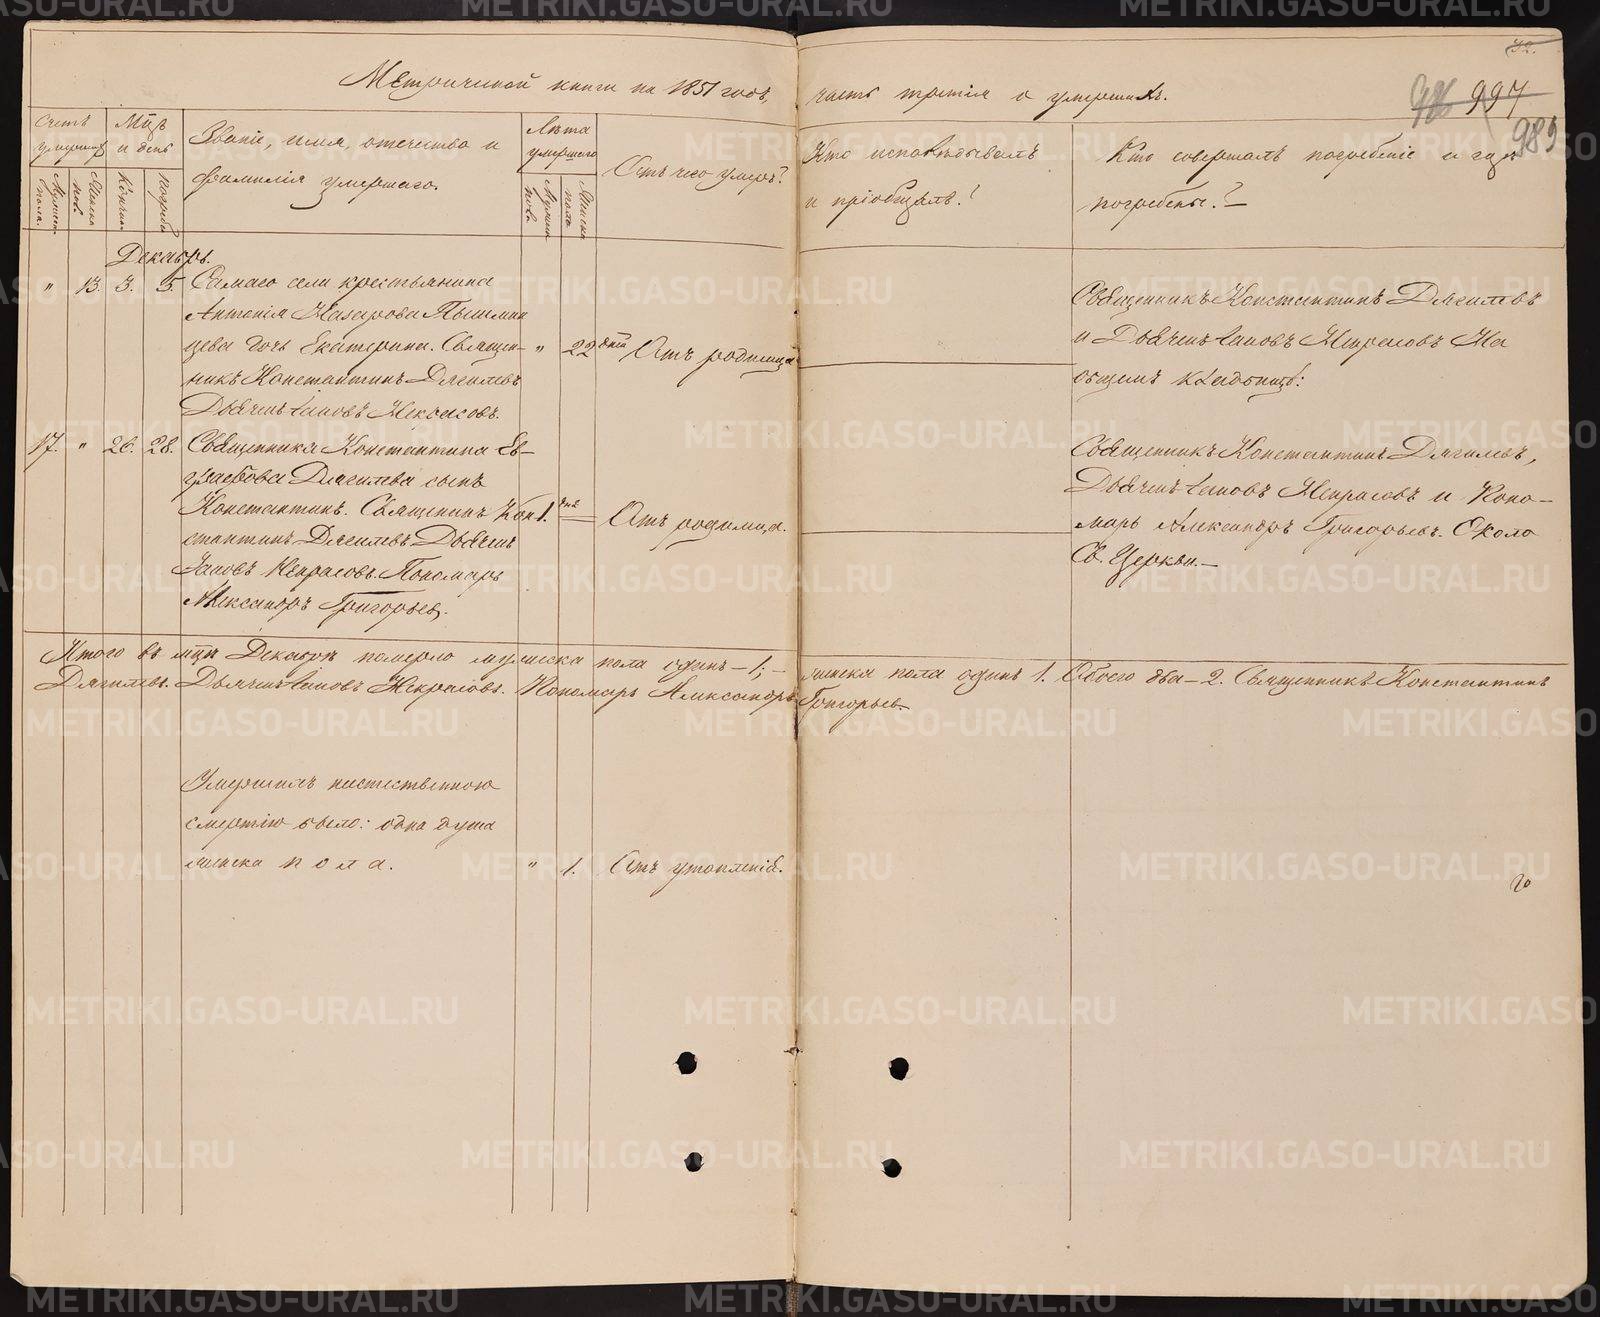 Метрической книги на 1851 годъ, часть третія о умершихъ.
42.
986 997
985
Счетъ умершихъ
Мужеска пола.
Женска пол.
Мцъ и день
Кончины
Погреб.
Званіе, имя, отечество и
фамилія умершаго.
Лѣта умершаго
Мужес. пола
Женска пола
Отъ чего умеръ?
Кто исповѣдывалъ
и пріобщалъ?
Кто совершалъ погребеніе и гдѣ
погребены?
Декабрь.
" 13. 3. 5.
Самаго села крестьянина
Антонія Назарова Пышмин
цева дочь Екатерина. Священ-
никъ Константинъ Дягилевъ
Дьячекъ Іаковъ Некрасовъ.
" 22 дній
Отъ родимца
Священникъ Константинъ Дягилевъ
и Дьячекъ Іаковъ Некрасовъ На
общемъ кладбищѣ.
17. " 26. 28.
Священника Константина Ев-
графова Дягилева сынъ
Константинъ. Священникъ Кон
стантинъ Дягилевъ Дьячекъ
Іаковъ Некрасовъ. Пономарь
Александръ Григорьевъ.
1.
Отъ родимца.
Священникъ Константинъ Дягилевъ,
Дьячекъ Іаковъ Некрасовъ и Поно-
марь Александръ Григорьевъ. Около
Св. Церкви.
Итого въ мцѣ Декабрѣ померло мужеска пола одинъ - 1; - женска пола одинъ 1. Обоего два - 2. Священникъ Константинъ
Дягилевъ. Дьячекъ Іаковъ Некрасовъ. Пономарь Александръ Григорьевъ.
Умершихъ неестественною
смертію было: одна душа
женска пола.
" 1.
Отъ утопленія.
METRIKI.GASO-URAL.RU